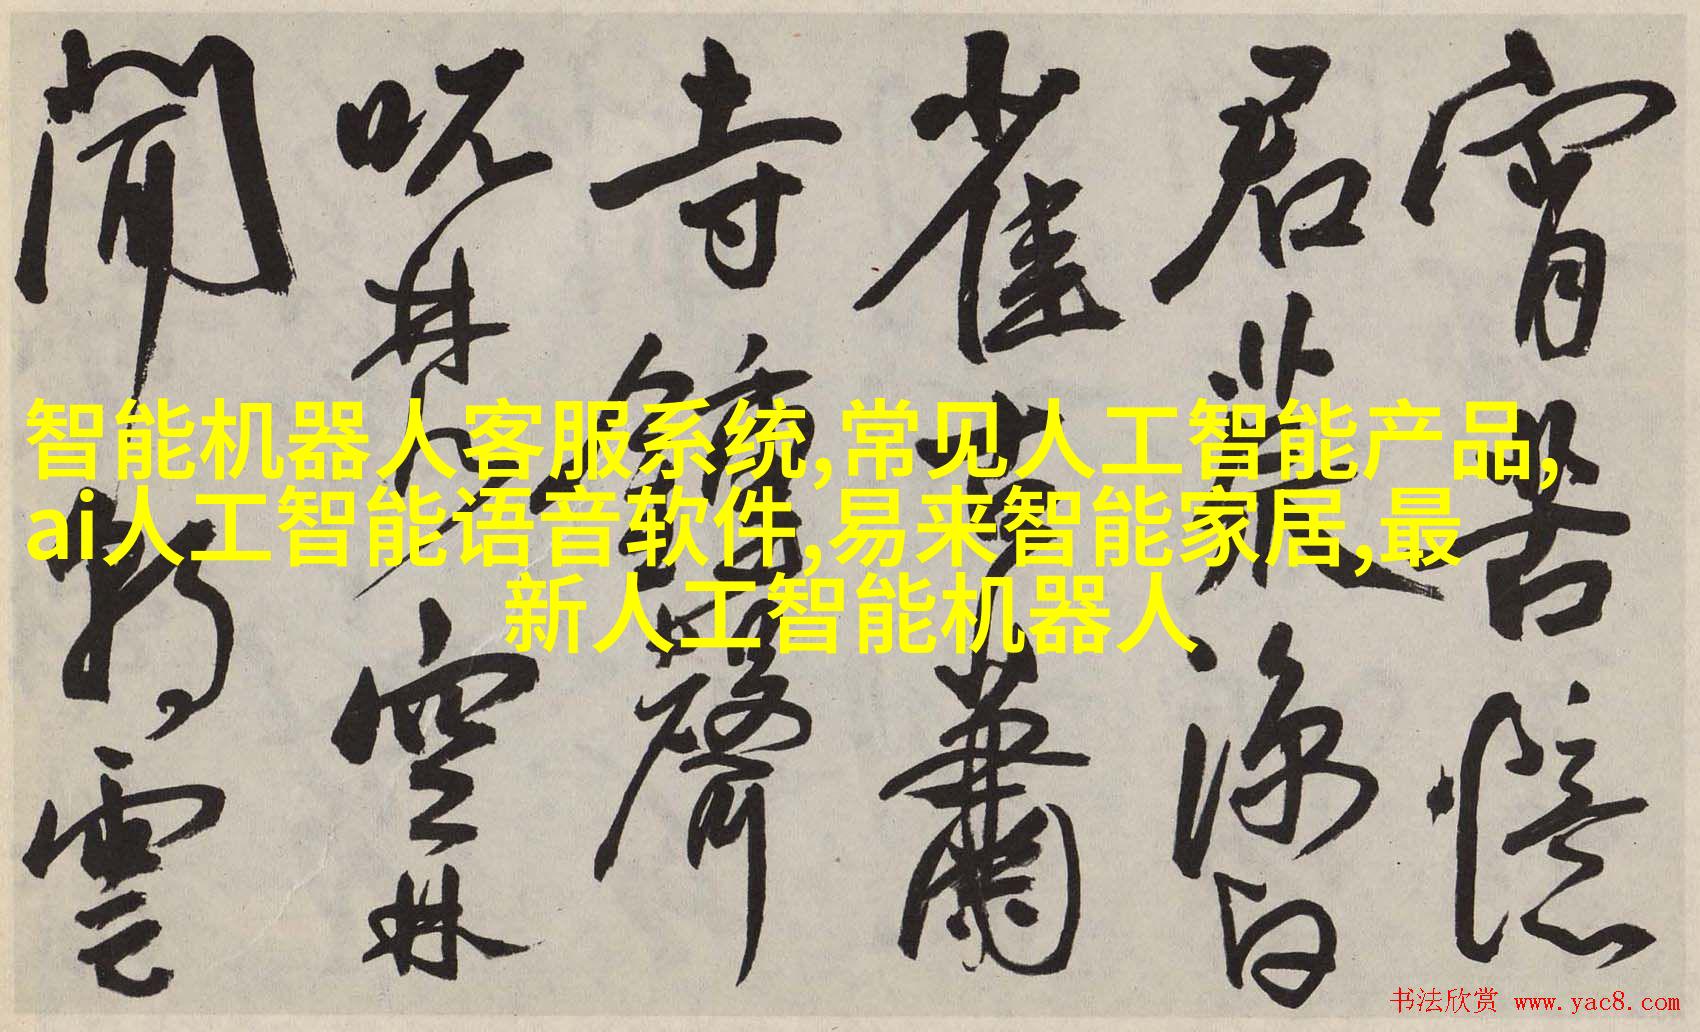 宵苦憶
君叢深
雀蕭
寺鐘聲
空林
雲
智能机器人客服系统,常见人工智能产品,
ai人工智能语音软件,易来智能家居,最
新人工智能机器人
书法欣赏 www.yac8.com